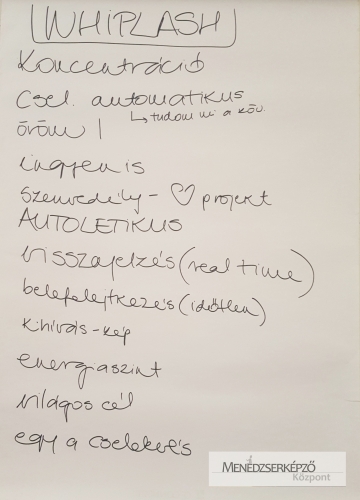 WHIPLASH
Koncentráció
Csel. automatikus
↳ tudom mi a köv.
öröm |
ingyen is
Szenvedély - ♡ projekt
AUTOLETIKUS
visszajelzés (real time)
belefelejtkezés (időtlen)
Kihívás - kép
energiaszint
világos cél
egy a cselekvés
MENEDZSERKÉPZŐ
Központ